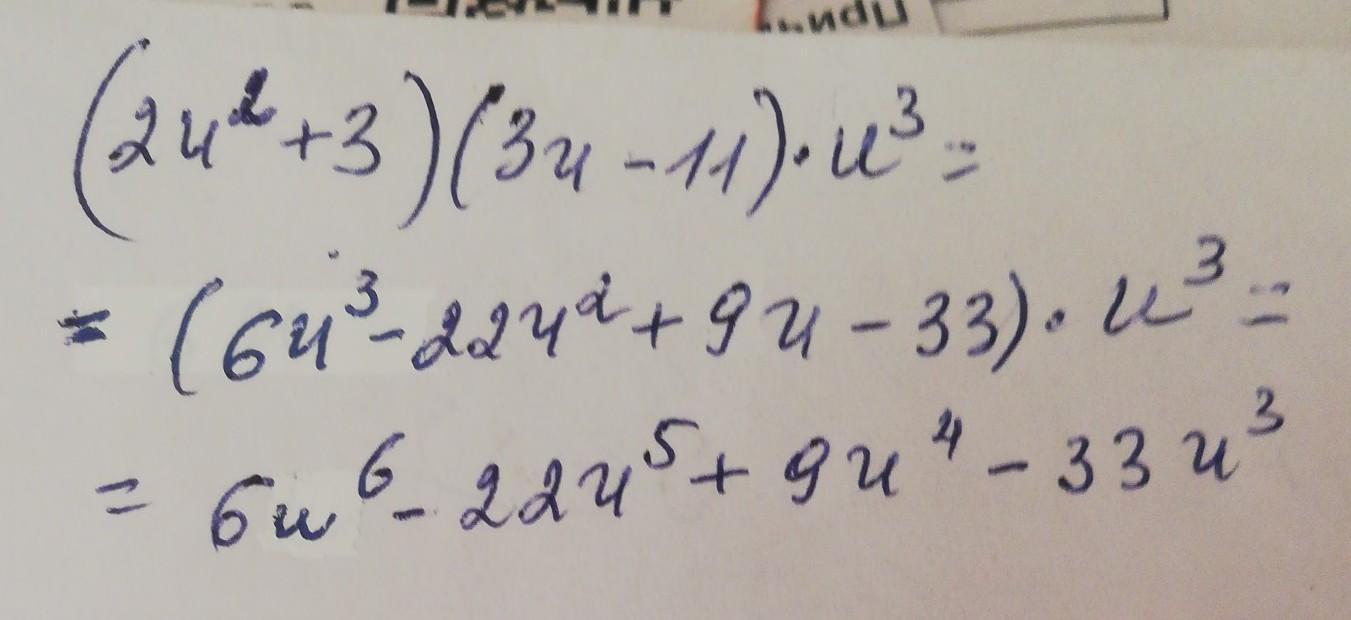 (2u²+3)(3u-11)·u³=
=(6u³-22u²+9u-33)·u³=
=6u⁶-22u⁵+9u⁴-33u³